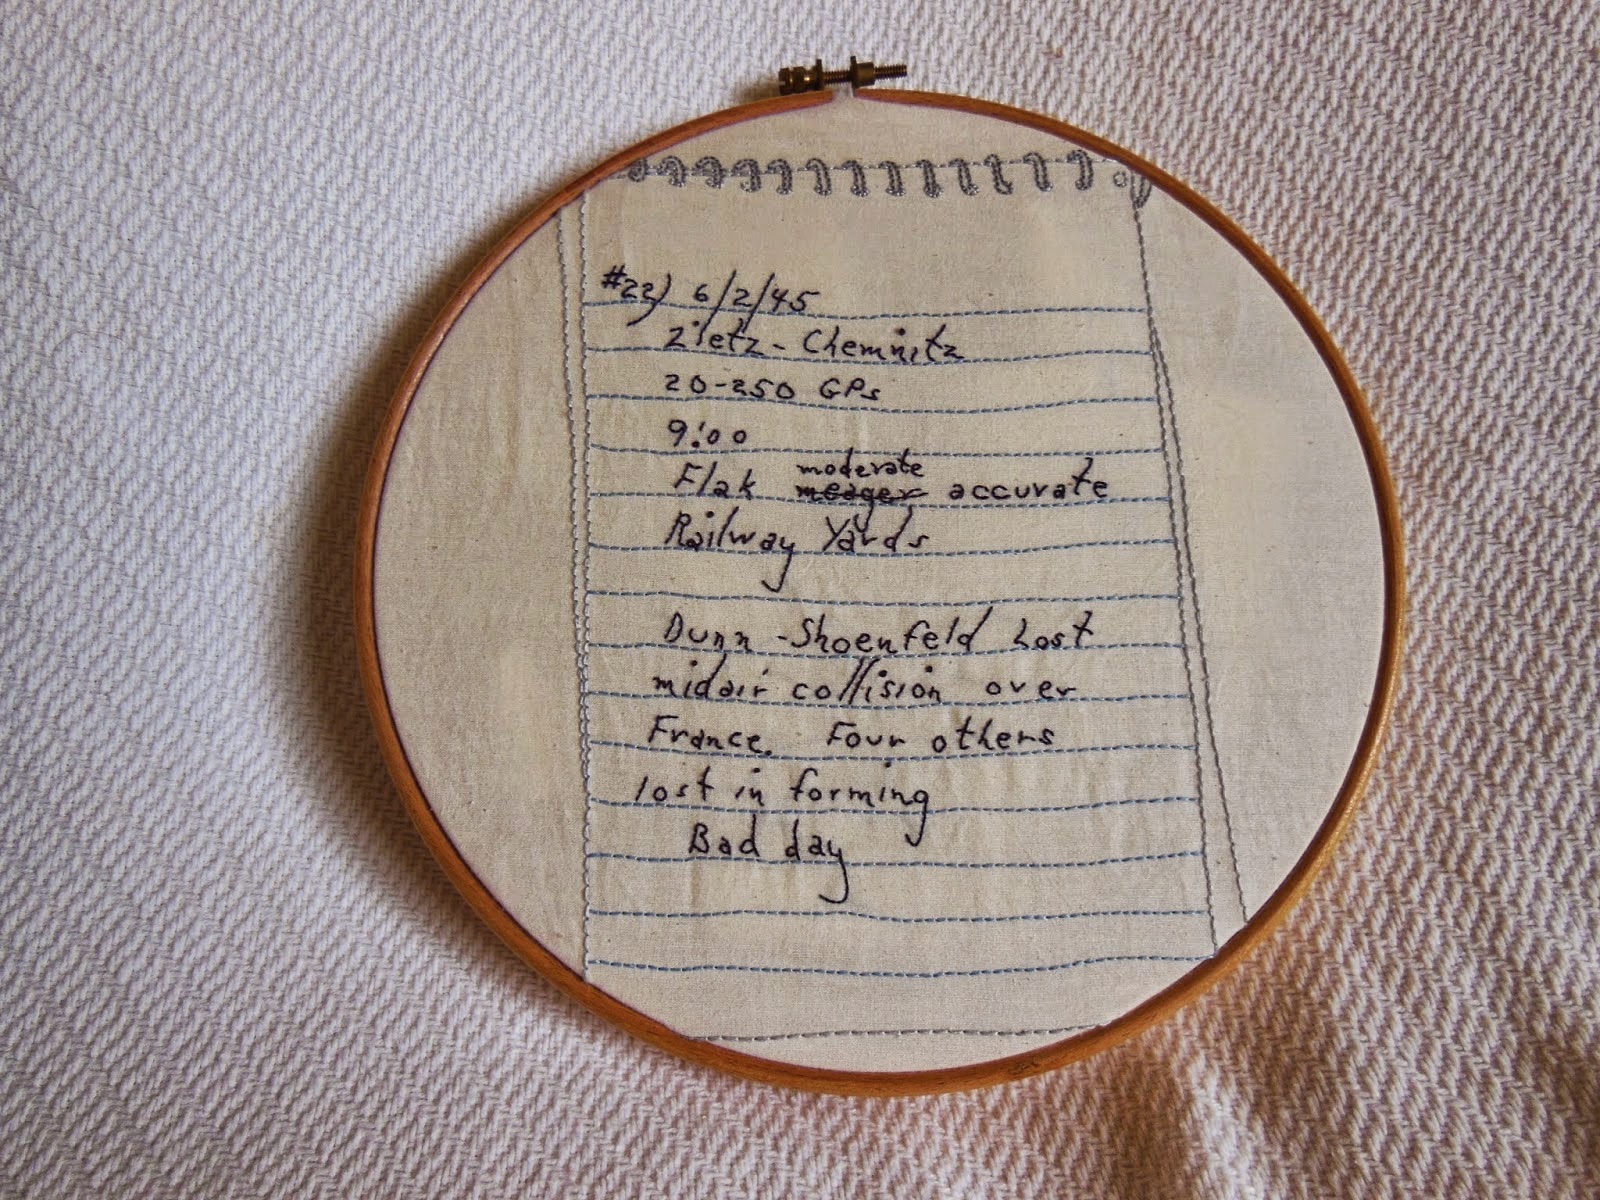 #22) 6/2/45
Zietz - Chemnitz
20-250 GPs
9:00
Flak moderate meager accurate
Railway Yards
Dunn - Shoenfeld Lost
midair collision over
France. Four others
lost in forming
Bad day